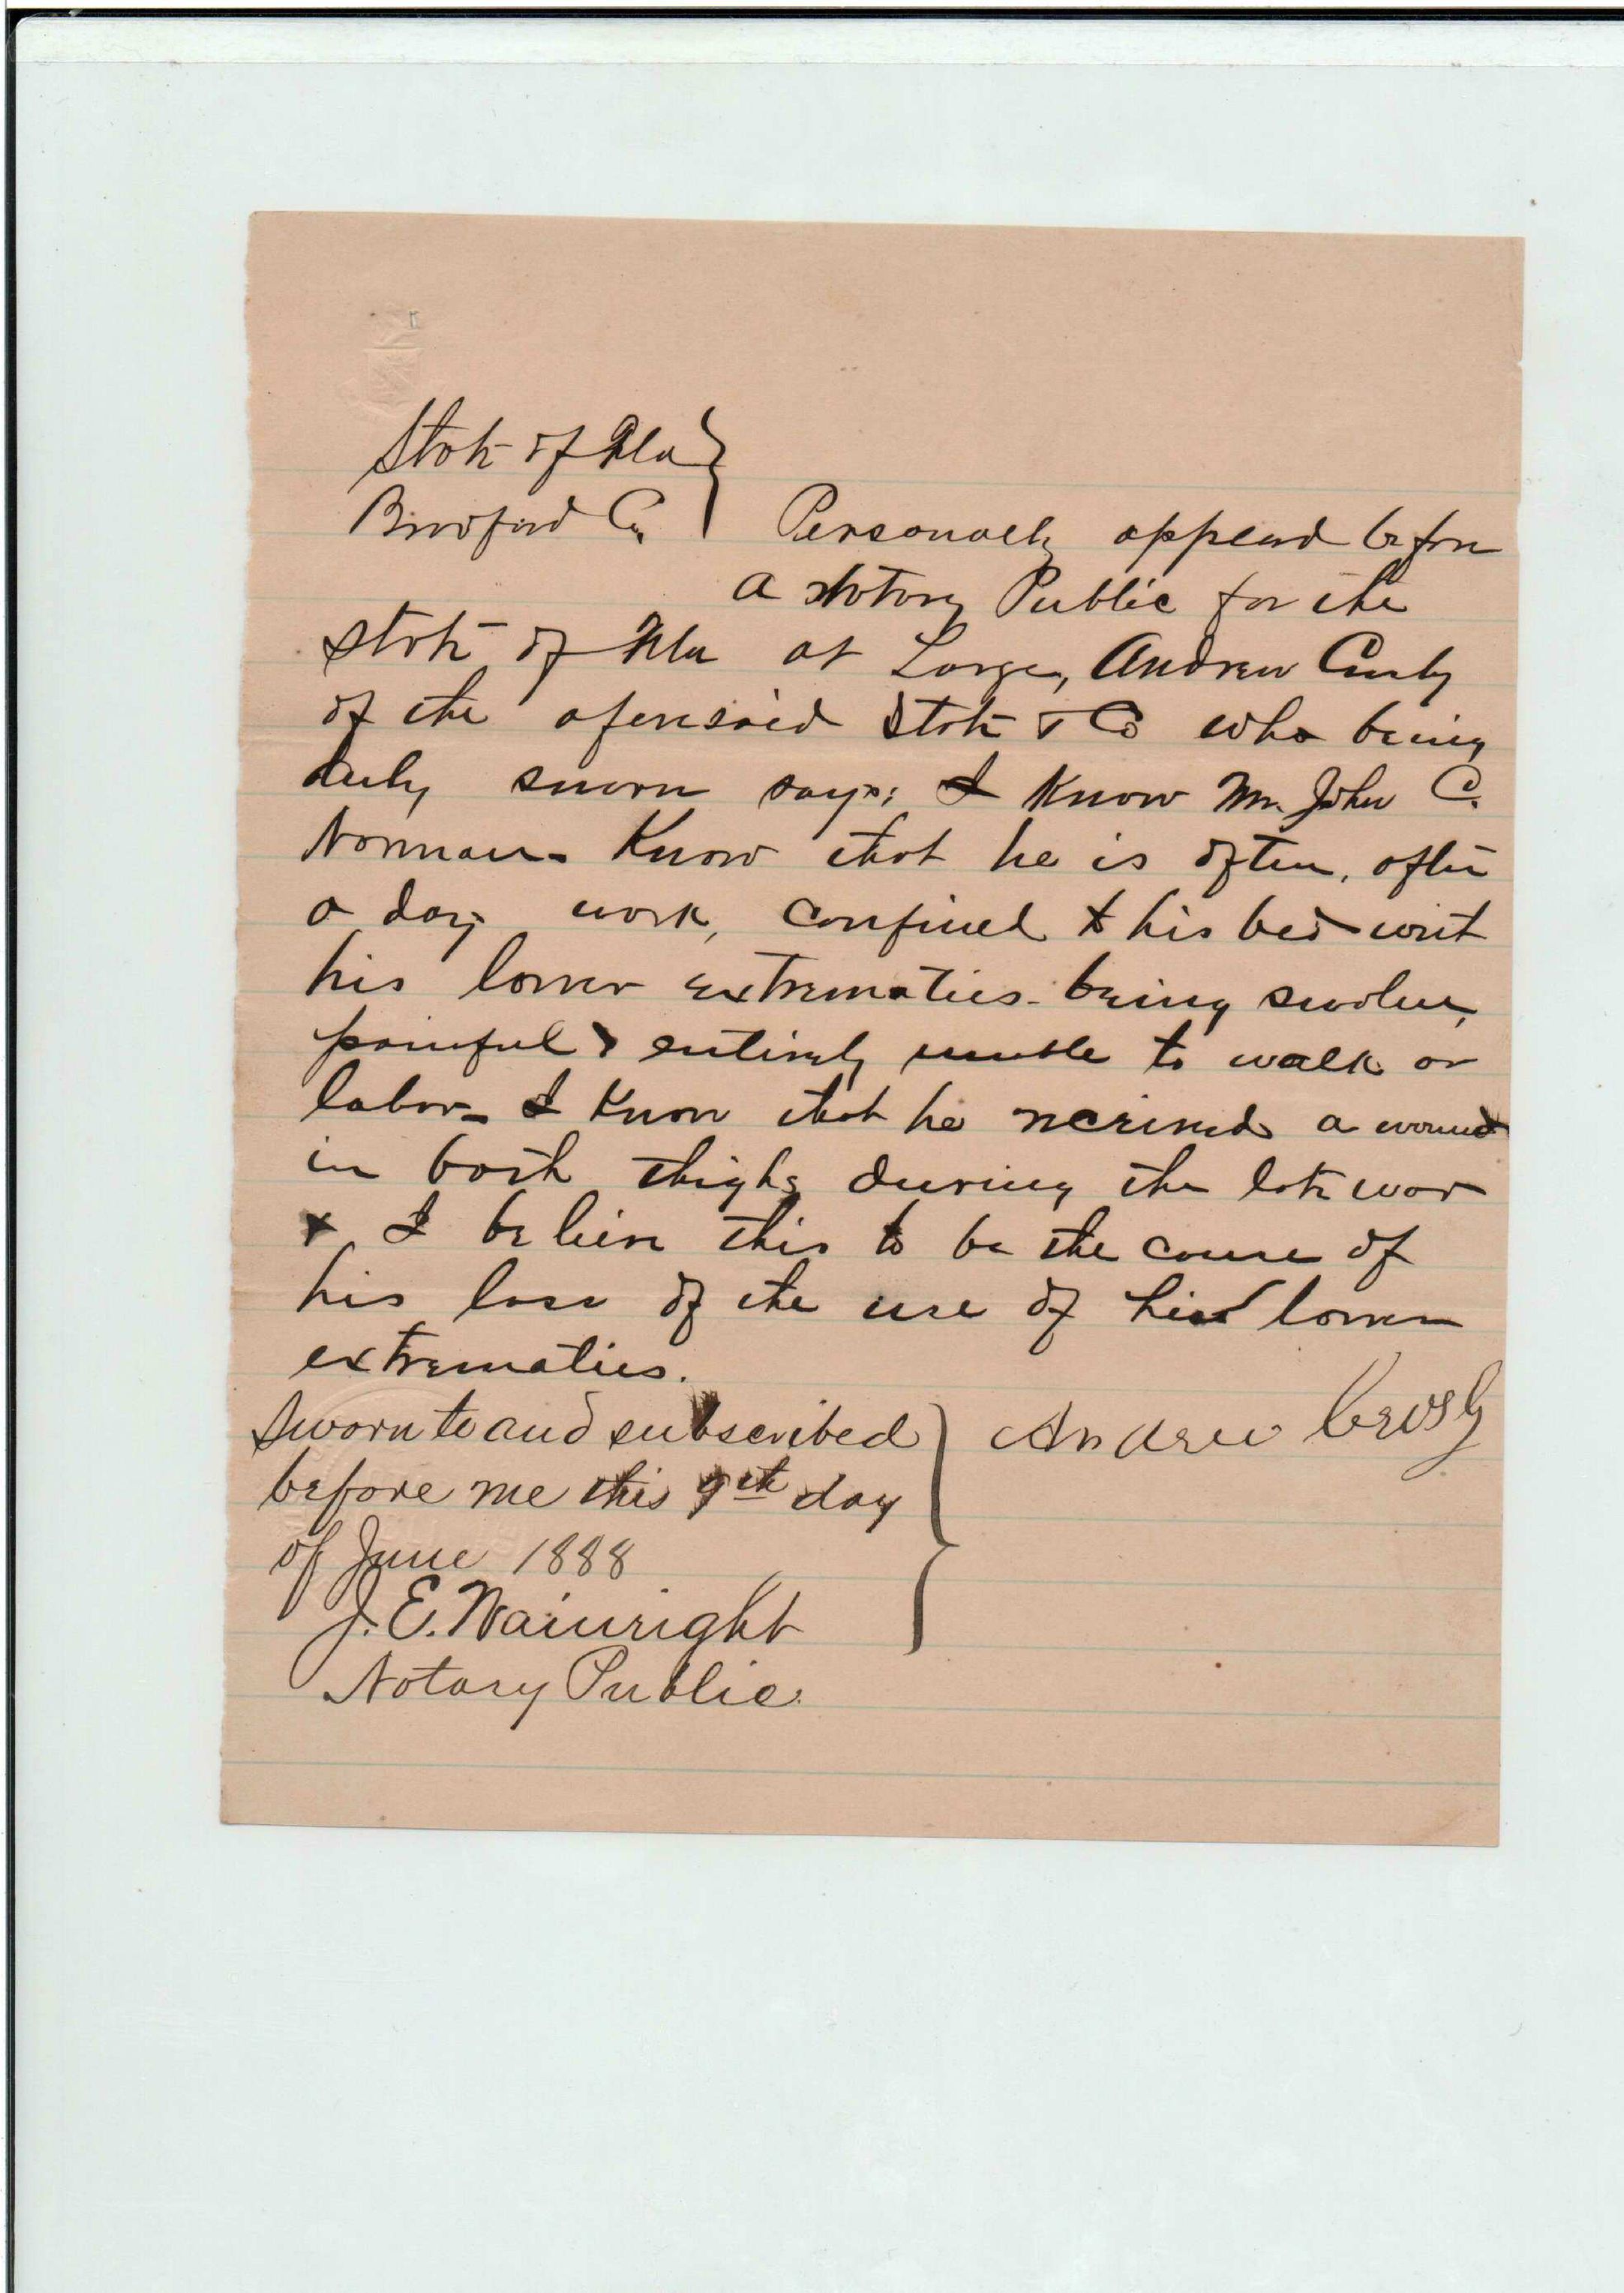 State of Fla
Bradford Co.
Personally appeard before
a Notory Public for the
State of Fla at Large, Andrew
of the aforesaid State & Co who being
duly sworn says; I know Mr. John C.
Norman - Know that he is often, after
a days work, confined to his bed wit
his lower extrematies being swolen,
painful & entirely unable to walk or
labor - I know that he recieved a wound
in both thighs during the late war
& I believe this to be the cause of
his loss of the use of his lower
extrematies.
Sworn to and subscribed
before me this 9th day
of June 1888
J. E. Wainright
Notary Public.
Andrew